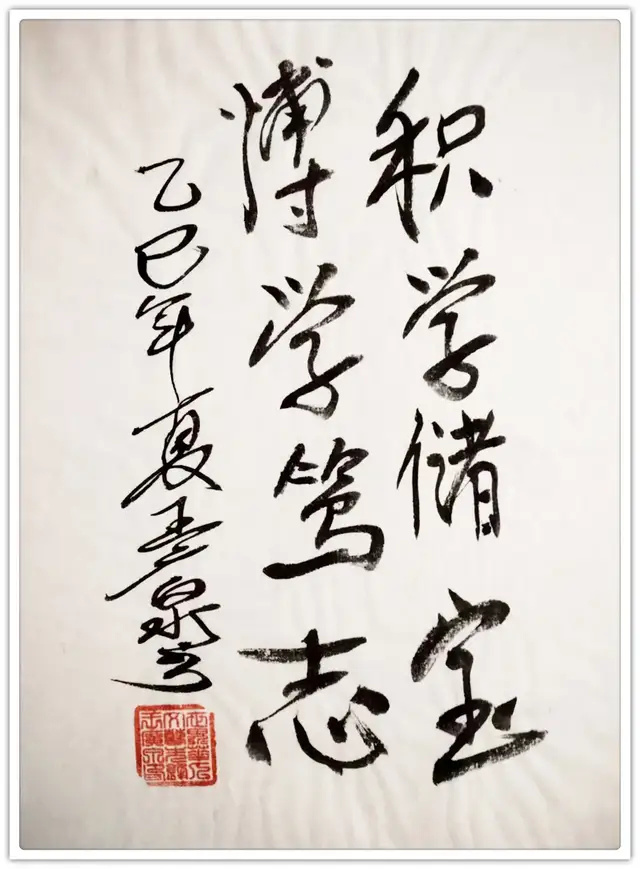 积学储宝
博学笃志
乙巳年夏王泉书